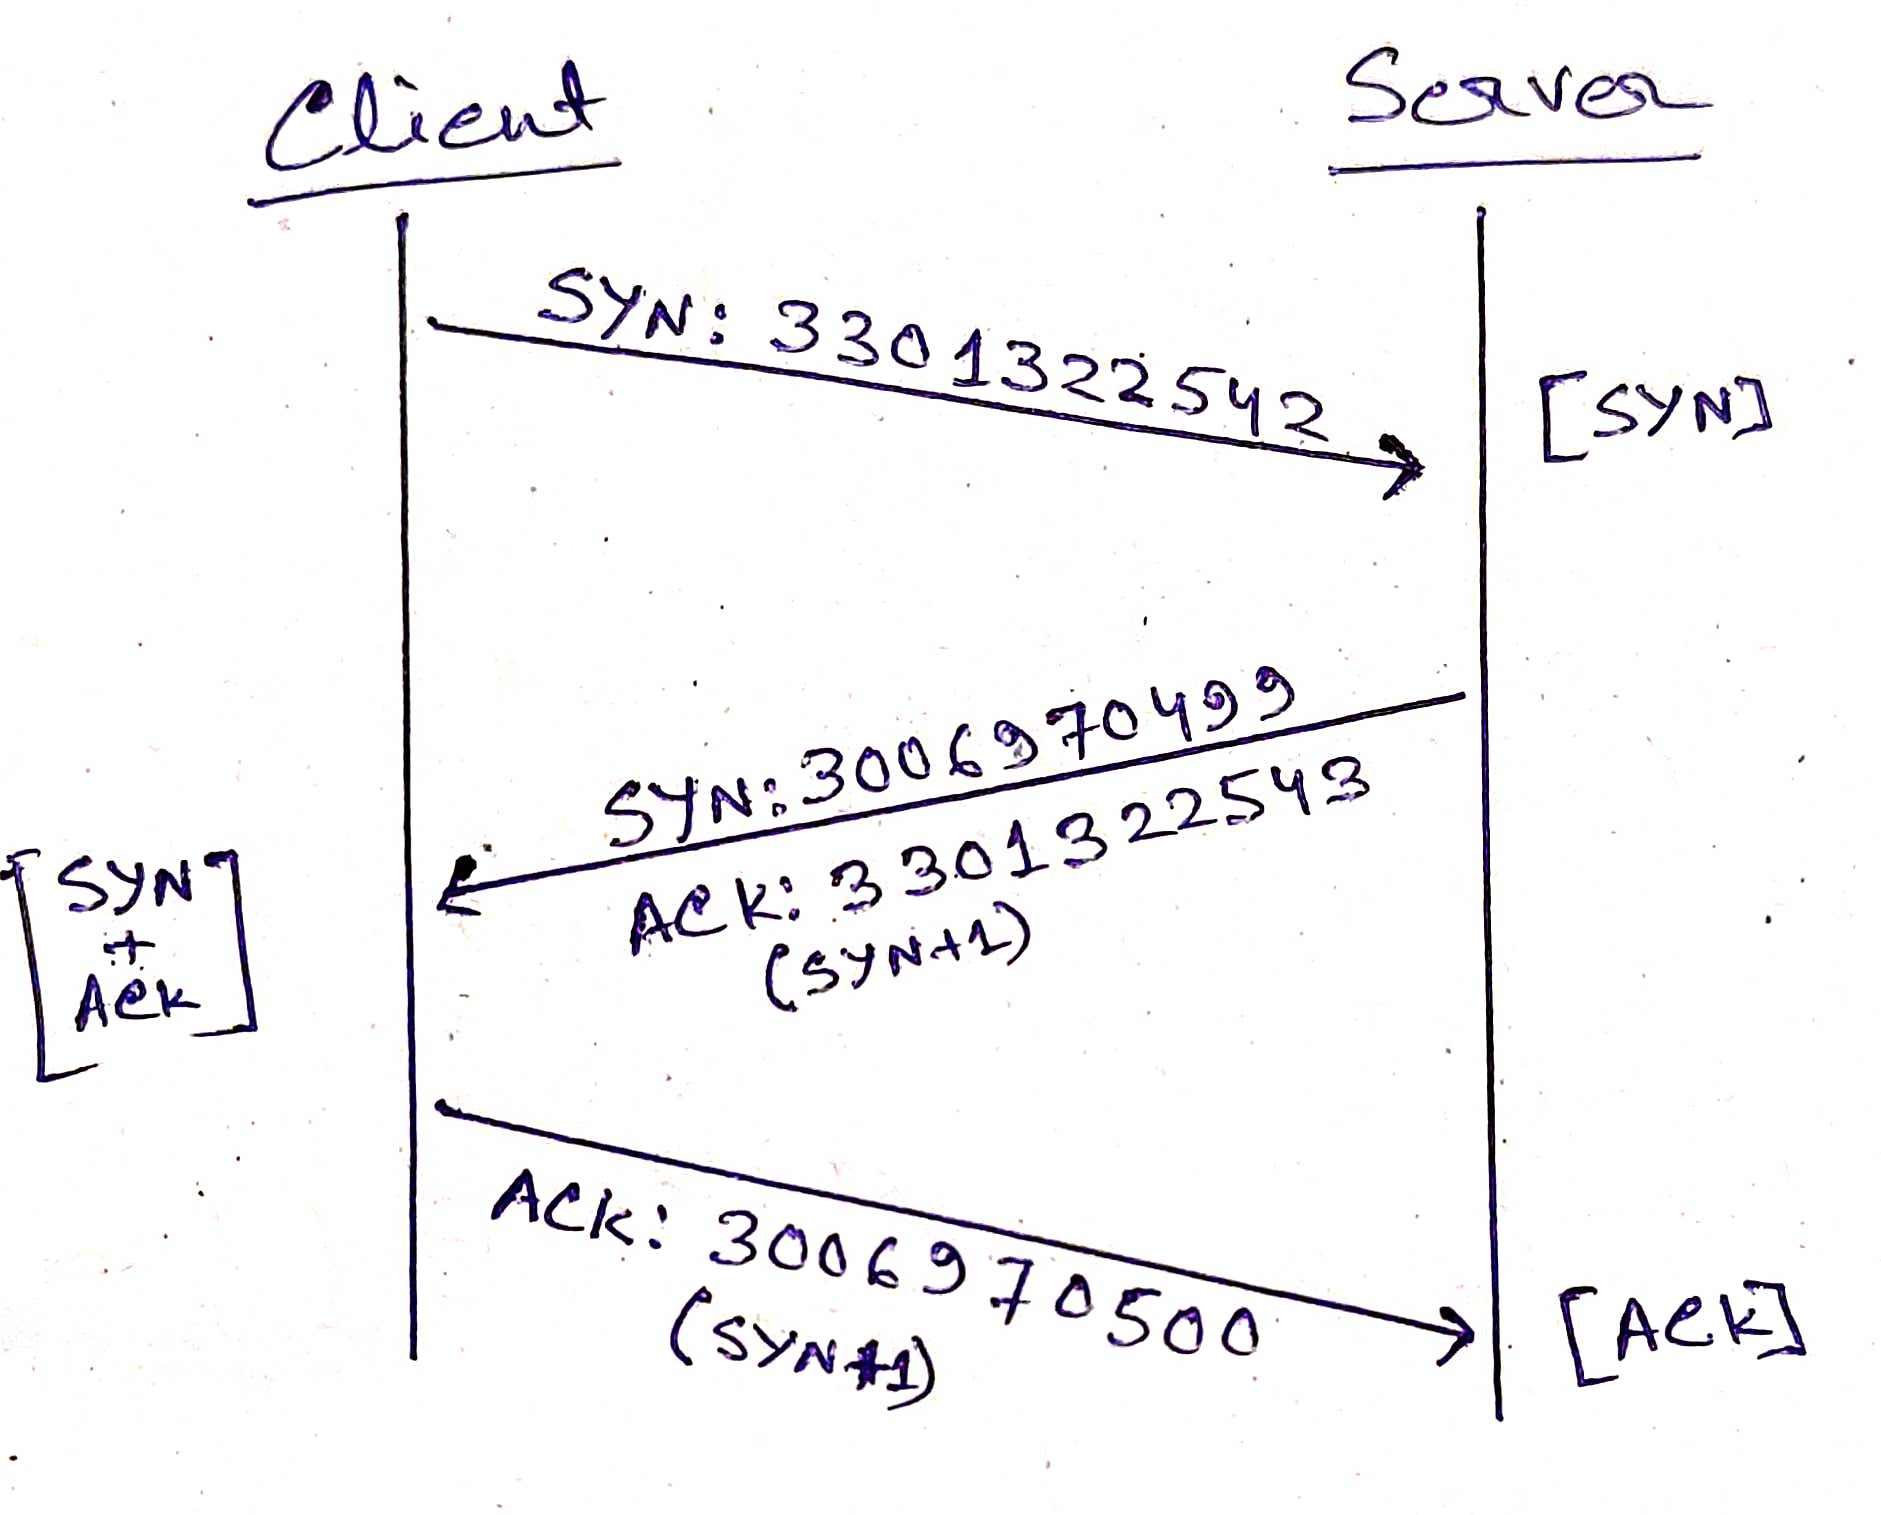 Client
Server
SYN: 3301322542
[SYN]
SYN: 3006970499
ACK: 3301322543
(SYN+1)
[SYN
+
ACK]
ACK: 3006970500
(SYN+1)
[ACK]